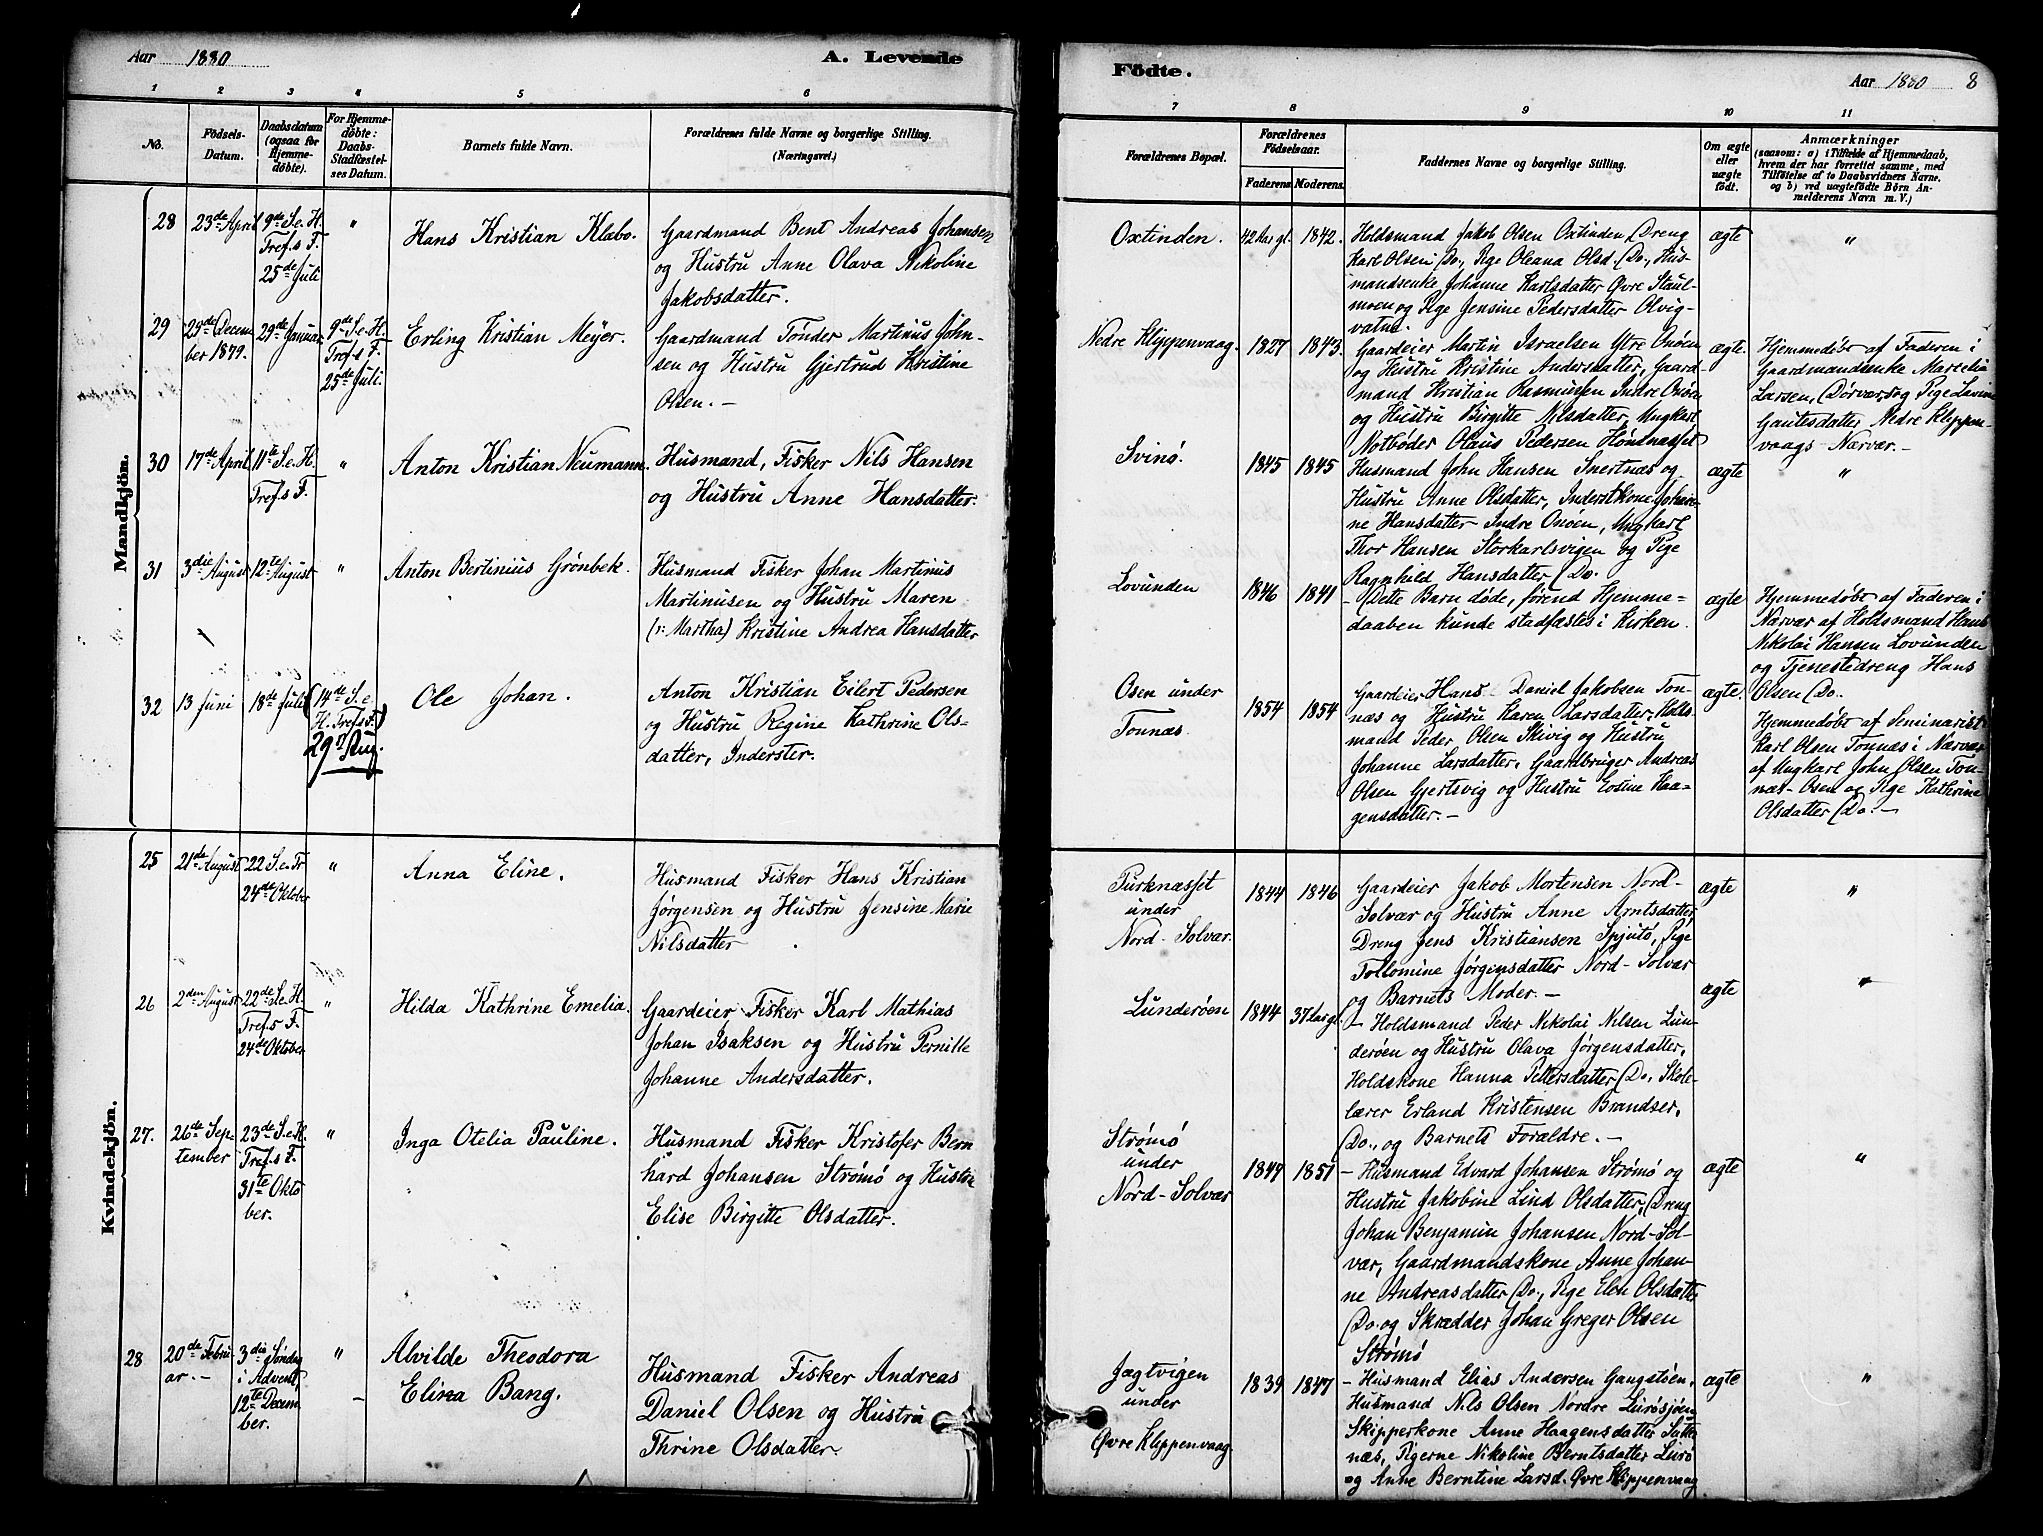 Aar 1880
A. Levende
1 2 3 " 5 6
No.
Födsels-
Datum.
Daabsdatum
(ogsaa for
Hjemme-
döbte).
For Hjemme-
döbte:
Daabs-
Stadfæstel-
ses Datum.
Barnets fulde Navn.
Forældrenes fulde Navne og borgerlige Stilling.
(Næringsvei.)
Mandkjön.
28
23de April
9de S. e. H.
Tref.s F.
25de Juli
"
Hans Kristian Klabo.
Gaardmand Bent Andreas Johansen
og Hustru Anne Olava Nikoline
Jakobsdatter.
29
29de Decem
ber 1879.
29de Januar
9de S. e. H.
Tref.s F.
25de Juli.
Erling Kristian Meyer.
Gaardmand Tønder Martinus John-
sen og Hustru Gjertrud Kristine
Olsen. -
30
17de April
11te S. e. H.
Tref.s F.
"
Anton Kristian Neumann.
Husmand, Fisker Nils Hansen
og Hustru Anne Hansdatter.
31
3die August
12te August
"
Anton Bertinius Grønbek.
Husmand Fisker Johan Martinus
Martinusen og Hustru Maren
(r: Martha) Kristine Andrea Hansdatter
32
13 Juni
18de Juli
(14de S. e
H. Tref.s F.)
29 Aug.
Ole Johan.
Anton Kristian Eilert Pedersen
og Hustru Regine Kathrine Ols-
datter, Inderster.
Kvindekjön.
25
21de August
22 S. e. Tr
24de Oktober
"
Anna Eline.
Husmand Fisker Hans Kristian
Jørgensen og Hustru Jensine Marie
Nilsdatter
26
2den August
22de S. e. H.
Tref.s F.
24de Oktober
"
Hilda Kathrine Emelia.
Gaardeier Fisker Karl Mathias
Johan Isaksen og Hustru Pernille
Johanne Andersdatter.
27.
26de Sep-
tember
23de S. e. H.
Tref.s F.
31te Okto
ber.
"
Inga Otelia Pauline.
Husmand Fisker Kristofer Bern
hard Johansen Strømø og Hustru
Elise Birgitte Olsdatter.
28
20de Febru-
ar. -
3die Søndag
i Advent,
12te Decem
ber.
"
Alvilde Theodora
Elina Bang.
Husmand Fisker Andreas
Daniel Olsen og Hustru
Thrine Olsdatter.
Födte.
Aar 1880 8
7 8 9 10 11
Forældrenes Bopæl.
Forældrenes
Födselsaar.
Faderens. Moderens.
Faddernes Navne og borgerlige Stilling.
Om ægte
eller
uægte
födt.
Anmærkninger
(saasom: a) i Tilfælde af Hjemmedaab,
hvem der har forrettet samme, med
Tilföielse af to Daabsvidners Navne.
og b) ved uægtefödte Börn An-
melderens Navn m. V.)
Oxtinden.
42 Aar gl. 1842.
Holdsmand Jakob Olsen Oxtinden, Dreng
Karl Olsen (Do., Pige Oleana Olsd. (Do., Hus-
mandsenke Johanne Karlsdatter Øvre Staul-
moen og Pige Jensine Pedersdatter Olvig-
vatne.
ægte
"
Nedre Klippenvaag.
1827 1843.
Gaardeier Martin Israelsen Ytre Onøen
og Hustru Kristine Andersdatter, Gaard-
mand Kristian Rasmussen Indre Onøen
og Hustru Birgitte Nilsdatter, Ungkarl
Notbøder Olaus Pedersen Høndnasset
ægte.
Hjemmedøbt af Faderen i
Gaardmandsenke Marcelia
Larsen, (Dørvær, og Pige Lavine
Gautesdatter Nedre Klippen-
vaags Nærvær. -
Svinø.
1845 1845
Husmand John Hansen Snertnæs og
Hustru Anne Olsdatter, Inderst Kone Johan-
ne Hansdatter Indre Onøen, Ungkarl
Thor Hansen Storkarlsvigen og Pige
Ragnhild Hansdatter (Do.
ægte
"
Lovunden
1846 1841
- (Dette Barn døde, førend Hjemme=
daaben kunde stadfæstes i Kirken.
ægte
Hjemmedøbt af Faderen i
Nærvær af Holdsmand Hans
Nikolai Hansen Lovunden
og Tjenestedreng Hans
Olsen (Do.
Osen under
Tonnæs.
1854 1854
Gaardeier Hans Daniel Jakobsen Ton-
næs og Hustru Karen Larsdatter, Holds-
mand Peder Olsen Skivig og Hustru
Johanne Larsdatter, Gaardbruger Andreas
Olsen Gjertsvig og Hustru Eosine Haa-
gensdatter. -
ægte.
Hjemmedøbt af Seminarist
Karl Olsen Tonnæs i Nærvær
af Ungkarl John Olsen Ton-
næs-Osen og Pige Kathrine
Olsdatter (Do. -
Purknæsset
under
Nord-Solvær.
1844 1846
Gaardeier Jakob Mortensen Nord-
Solvær og Hustru Anne Arntsdatter,
Dreng Jens Kristiansen Spjutø, Pige
Tollomine Jørgensdatter Nord-Solvær
og Barnets Moder. -
ægte
"
Lunderøen
1844 37 Aar gl.
- Holdsmand Peder Nikolai Nilsen Lun-
derøen og Hustru Olava Jørgensdatter,
Holdskone Hanna Pettersdatter (Do., Skole-
lærer Erland Kristensen Brandser,
(Do., og Barnets Forældre. -
ægte
"
Strømø
under
Nord-Solvær
1849 1851
- Husmand Edvard Johansen Strømø og
Hustru Jakobine Lind Olsdatter, (Dreng
Johan Benjamin Johansen Nord-Sol-
vær, Gaardmandskone Anne Johan-
ne Andreasdatter (Do., Pige Elen Olsdatter
(Do. og Skrædder Johan Greger Olsen
Strømø
ægte
"
Jægtvigen
under
Øvre Klippenvaag.
1839 1847
- Husmand Elias Andersen Gangstøen,
Husmand Nils Olsen Nordre Lurøsjøen,
Skipperkone Anne Haagensdatter Sætte-
næs, Pigerne Nikoline Berntsdatter Lurø
og Anne Berntine Larsd. Øvre Klippenvaag
ægte
"